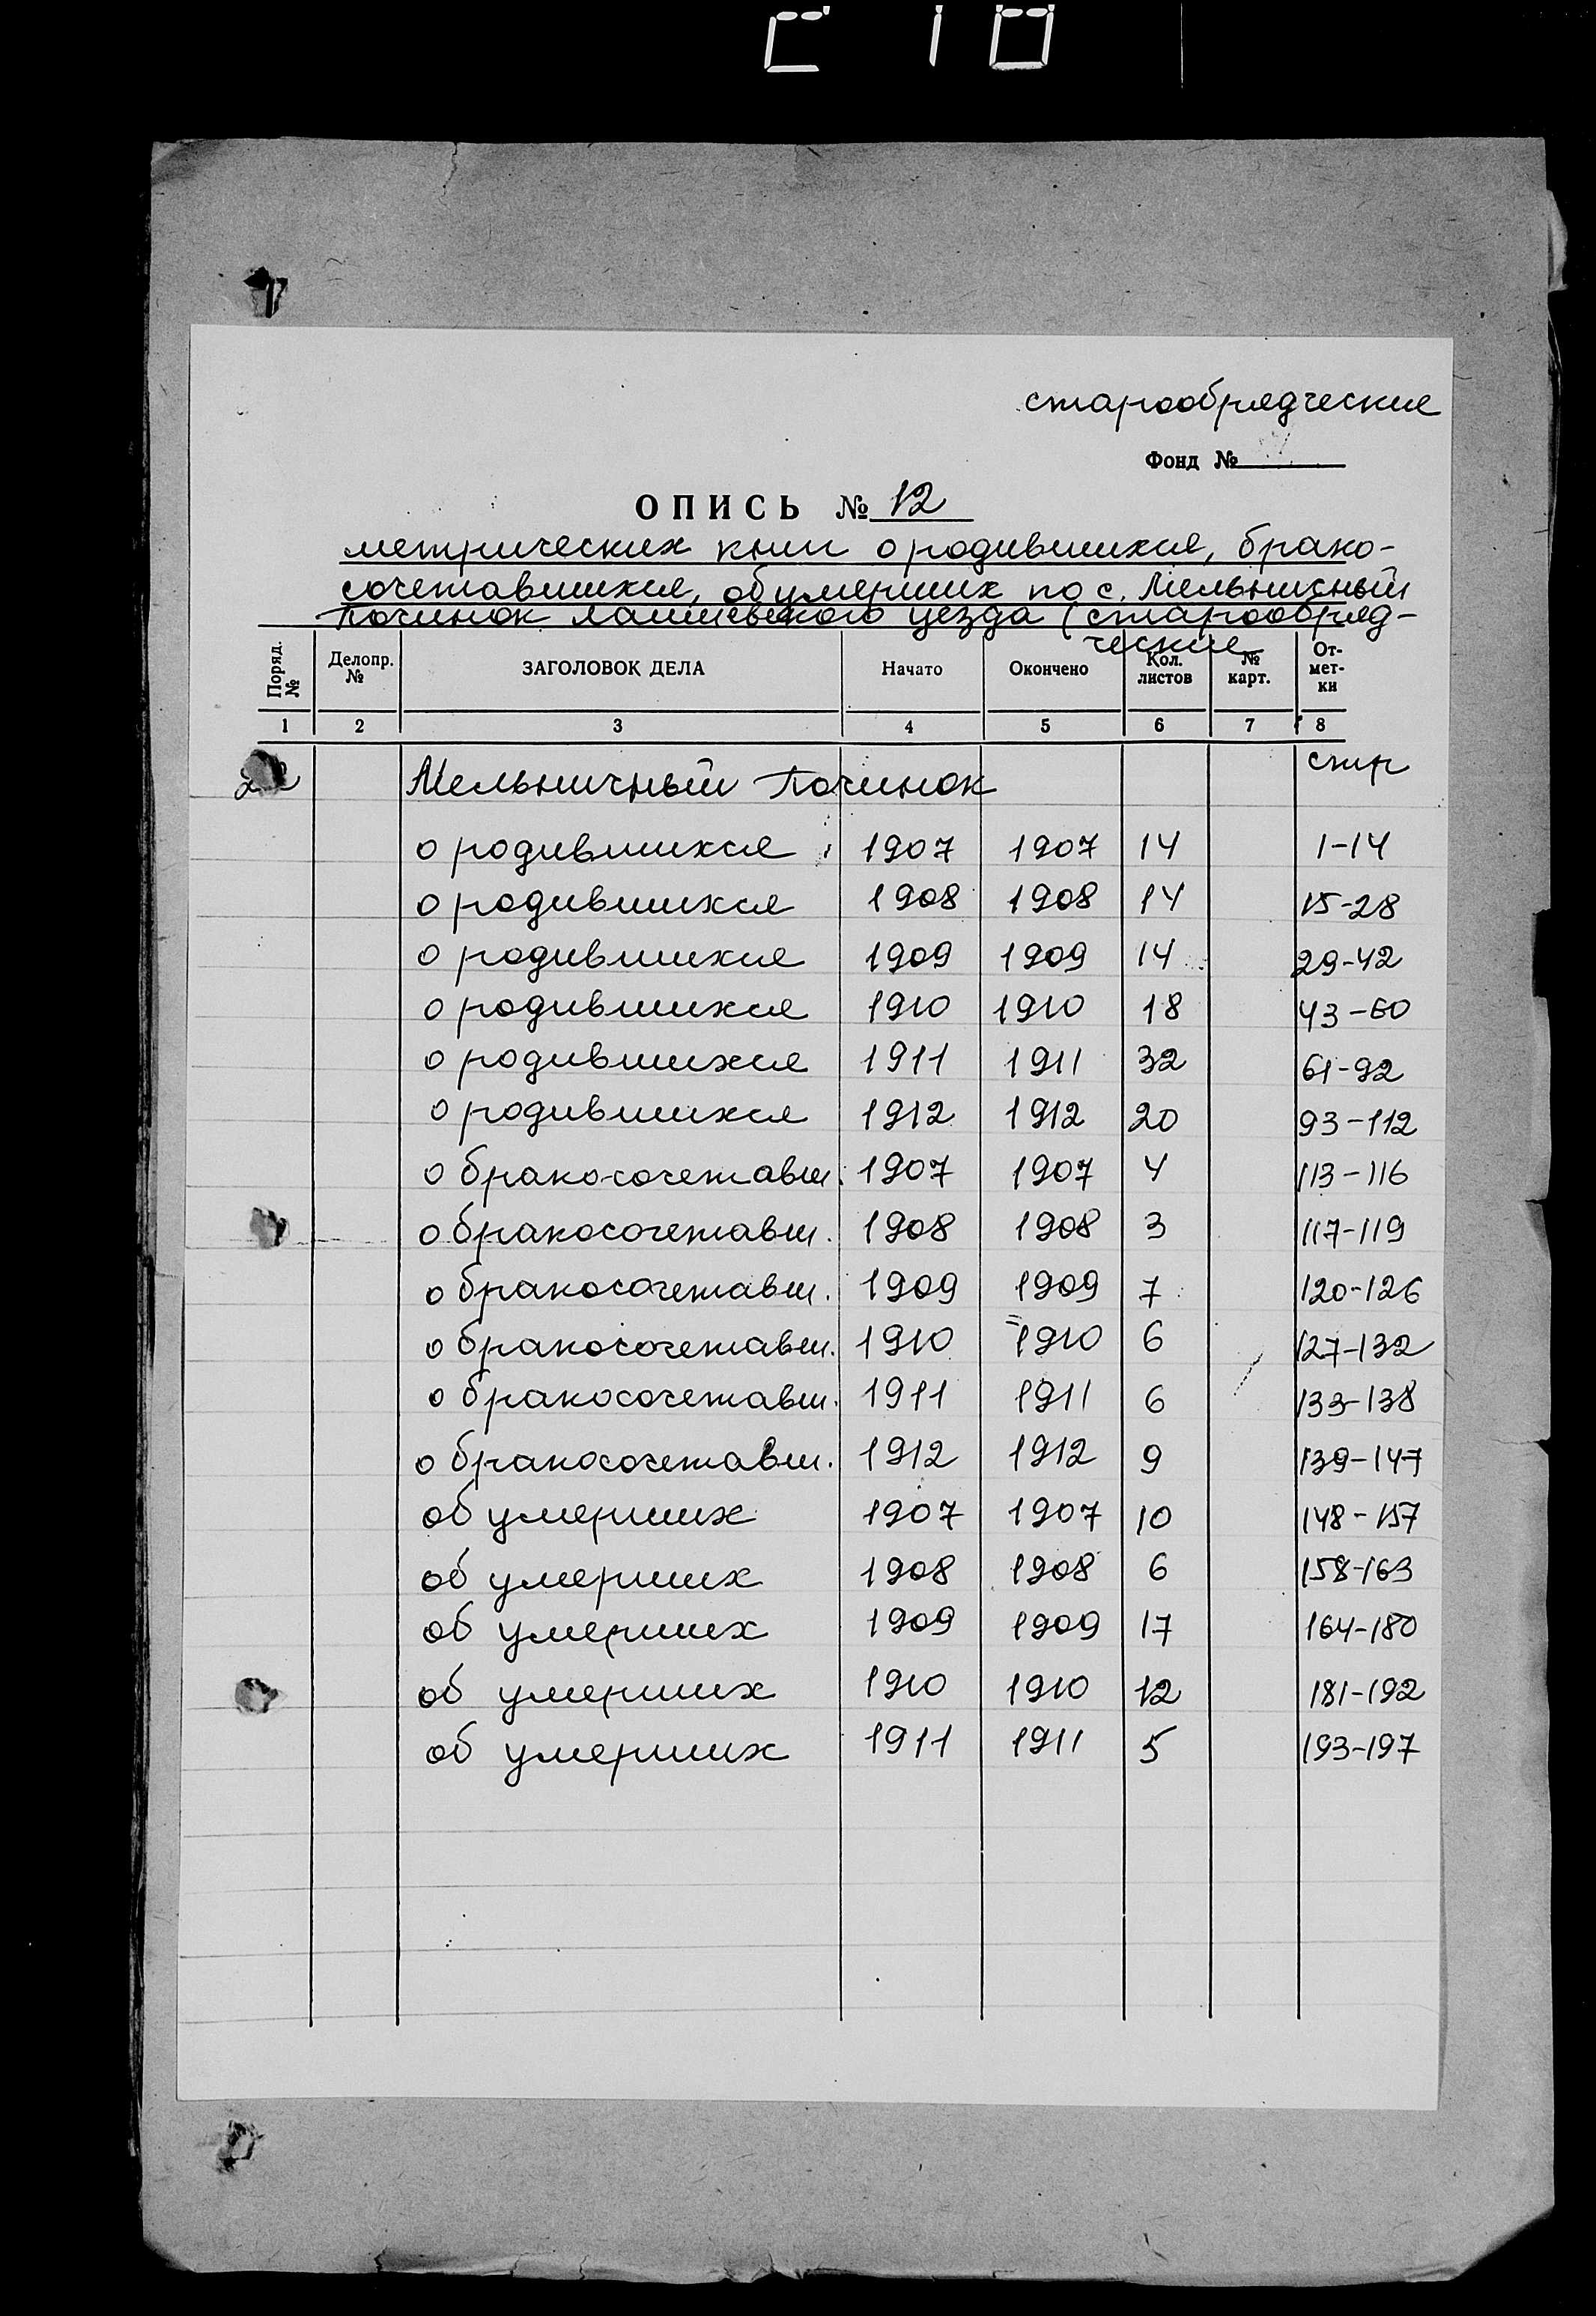 старообрядческие
Фонд №
ОПИСЬ № 12
метрических книг о родившихся, брако-
сочетавшихся, об умерших по с. Мельничный
Починок Лаишевского уезда (старообряд-
ческие
Поряд. № Делопр. № ЗАГОЛОВОК ДЕЛА Начато Окончено Кол. листов № карт. От-мет-ки
1 2 3 4 5 6 7 8
Мельничный Починок стр
о родившихся 1907 1907 14 1-14
о родившихся 1908 1908 14 15-28
о родившихся 1909 1909 14 29-42
о родившихся 1910 1910 18 43-60
о родившихся 1911 1911 32 61-92
о родившихся 1912 1912 20 93-112
о бракосочетавш. 1907 1907 4 113-116
о бракосочетавш. 1908 1908 3 117-119
о бракосочетавш. 1909 1909 7 120-126
о бракосочетавш. 1910 1910 6 127-132
о бракосочетавш. 1911 1911 6 133-138
о бракосочетавш. 1912 1912 9 139-147
об умерших 1907 1907 10 148-157
об умерших 1908 1908 6 158-163
об умерших 1909 1909 17 164-180
об умерших 1910 1910 12 181-192
об умерших 1911 1911 5 193-197